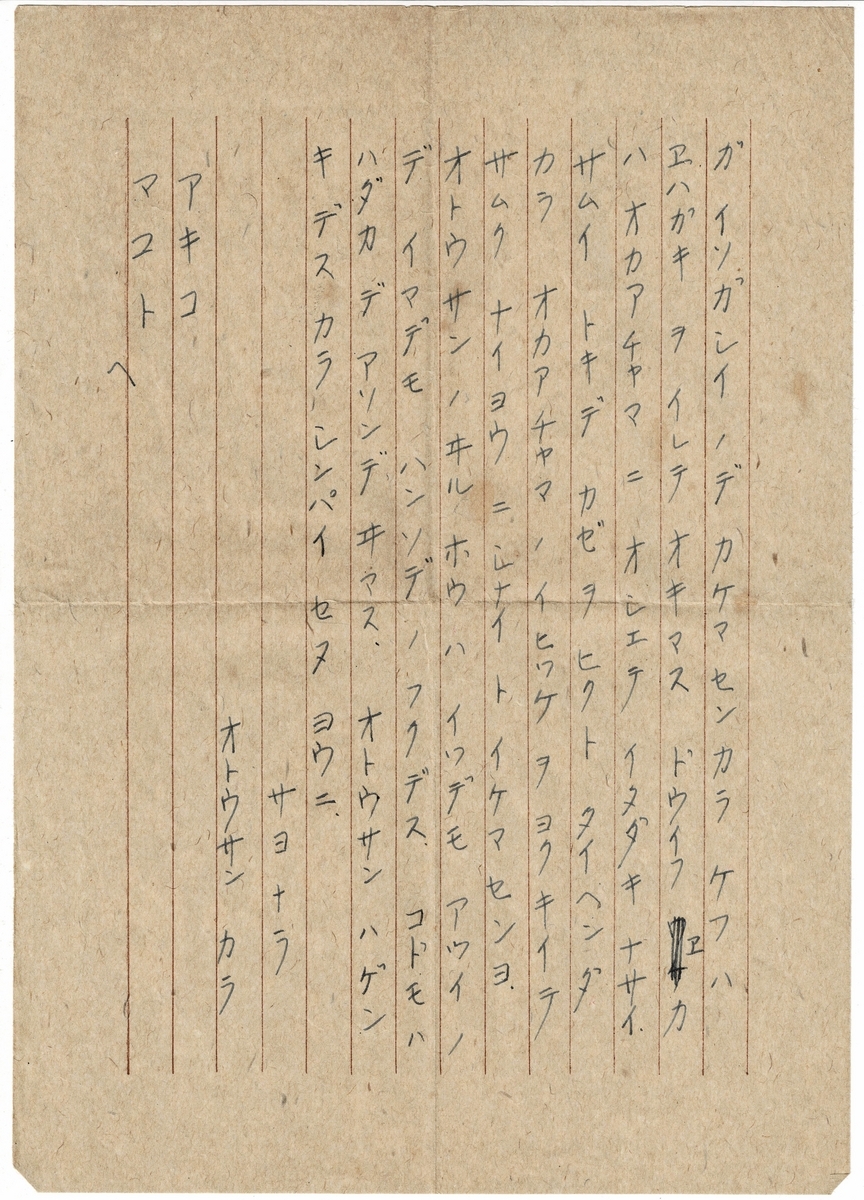 ガ イソガシイ ノデ カケマ センカラ ケフ ハ
ヱハガキ ヲ イレテ オキマス ドウイフ ヱ カ
ハ オカアチャマ ニ オシエテ イタダキ ナサイ.
サムイ トキデ カゼヲ ヒクト タイヘンダ
カラ オカアチャマ ノ イヒツケ ヲ ヨク キイテ
サムク ナイヨウ ニ シナイ ト イケマ センヨ.
オトウサン ノ ヰル ホウ ハ イツデモ アツイ ノ
デ イマデモ ハンソデ ノ フクデス. コドモハ
ハダカ デ アソンデ ヰマス. オトウサン ハ ゲン
キ デス カラ シンパイ セヌ ヨウニ.
サヨナラ
オトウサン カラ
アキコ
マコト
へ